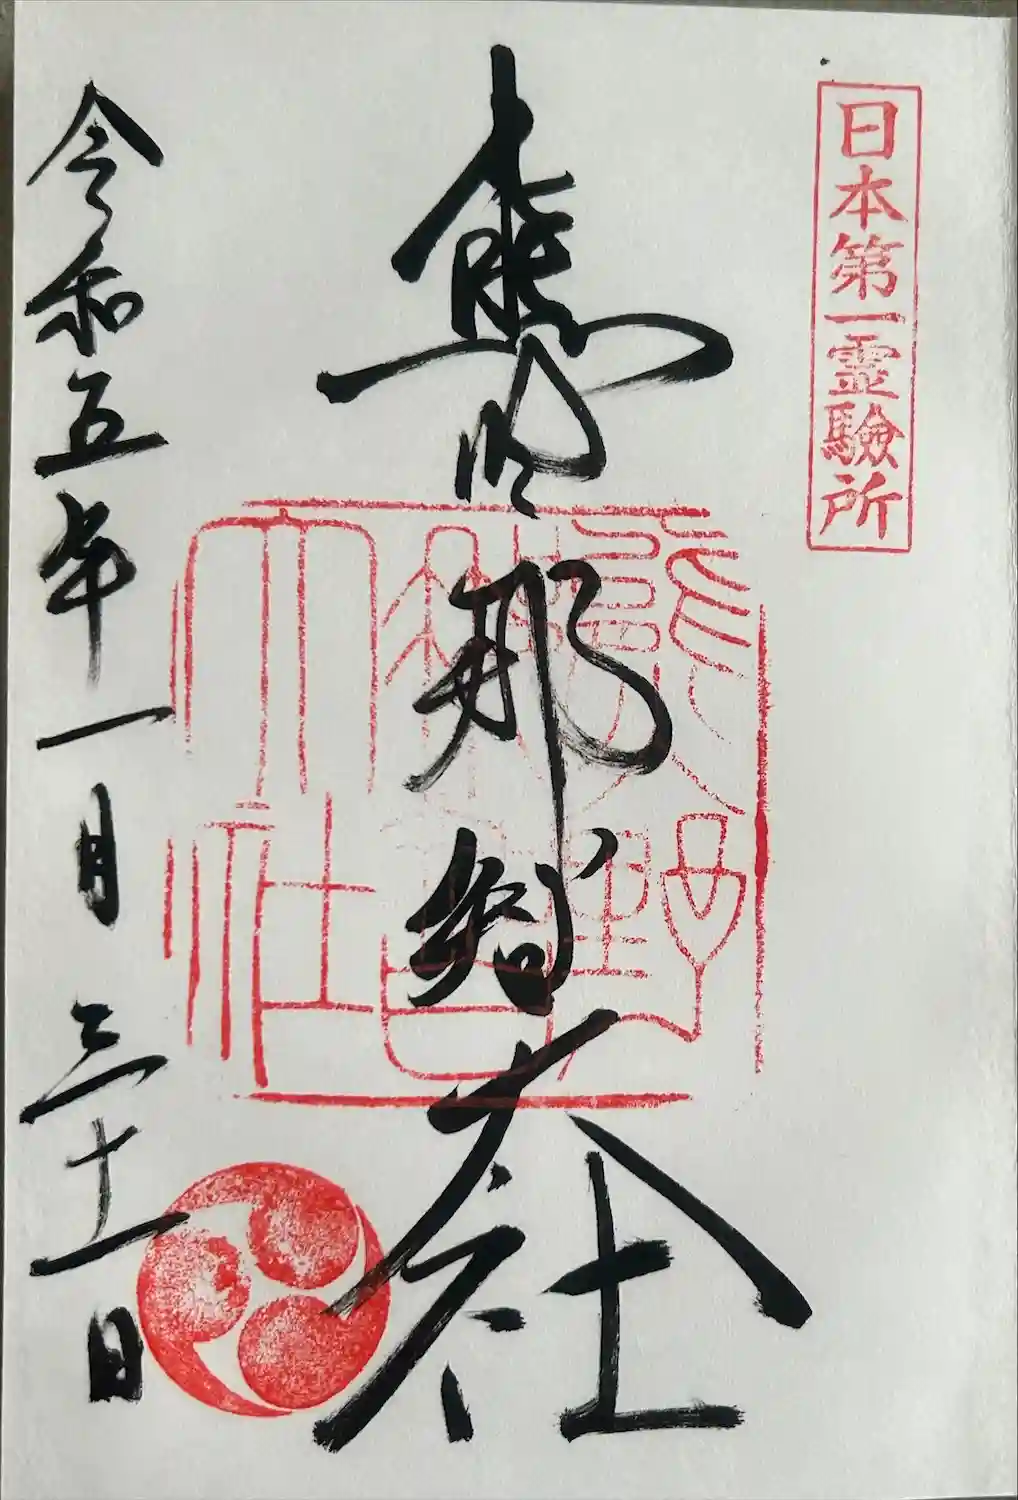 日本第一霊驗所
熊野那智大社
熊野那智大社
令和五年一月三十一日